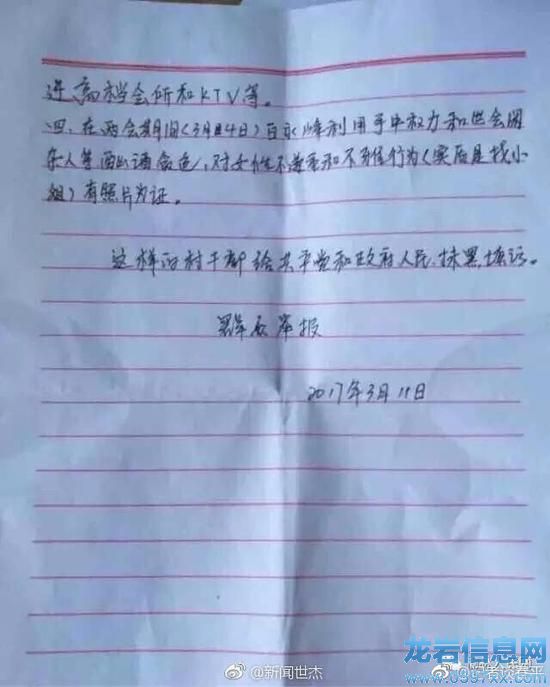 进高档会所和KTV等。
四、在两会期间(3月14日)百永峰利用手中权力和社会闲
杂人等酒山诱色,对女性不尊重和不责任行为(实后是找小
姐)有照片为证。
这样的村干部给共产党和政府人民.抹黑.填污。
群众举报
2017年3月11日
@新闻世杰
龙岩信息网
www.0597xx.com